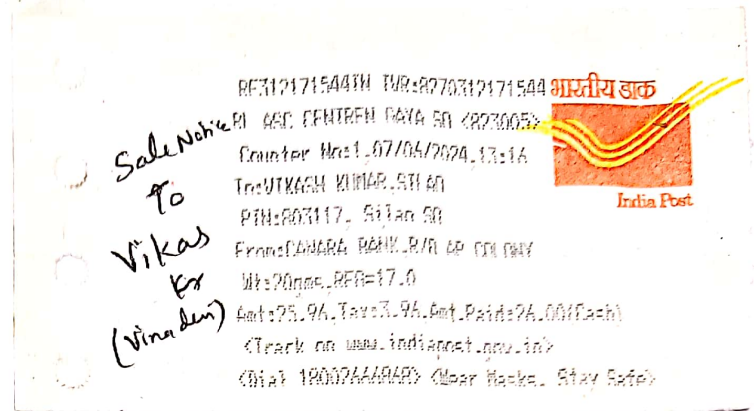 RF312171544IN IVR:8270312171544
RL ASC CENTREN GAYA SO <823005>
Counter No:1,07/06/2024,13:16
To:VIKASH KUMAR,SILAO
PIN:803117, Silao SO
From:CANARA BANK,R/O AP COLONY
Wt:20gms,REG=17.0
Amt:25.96,Tax:3.96,Amt.Paid:26.00(Cash)
<Track on www.indiapost.gov.in>
<Dial 18002666868> <Wear Masks, Stay Safe>
भारतीय डाक
India Post
Sale Notice
To
Vikas
Kr
(Vina devi)